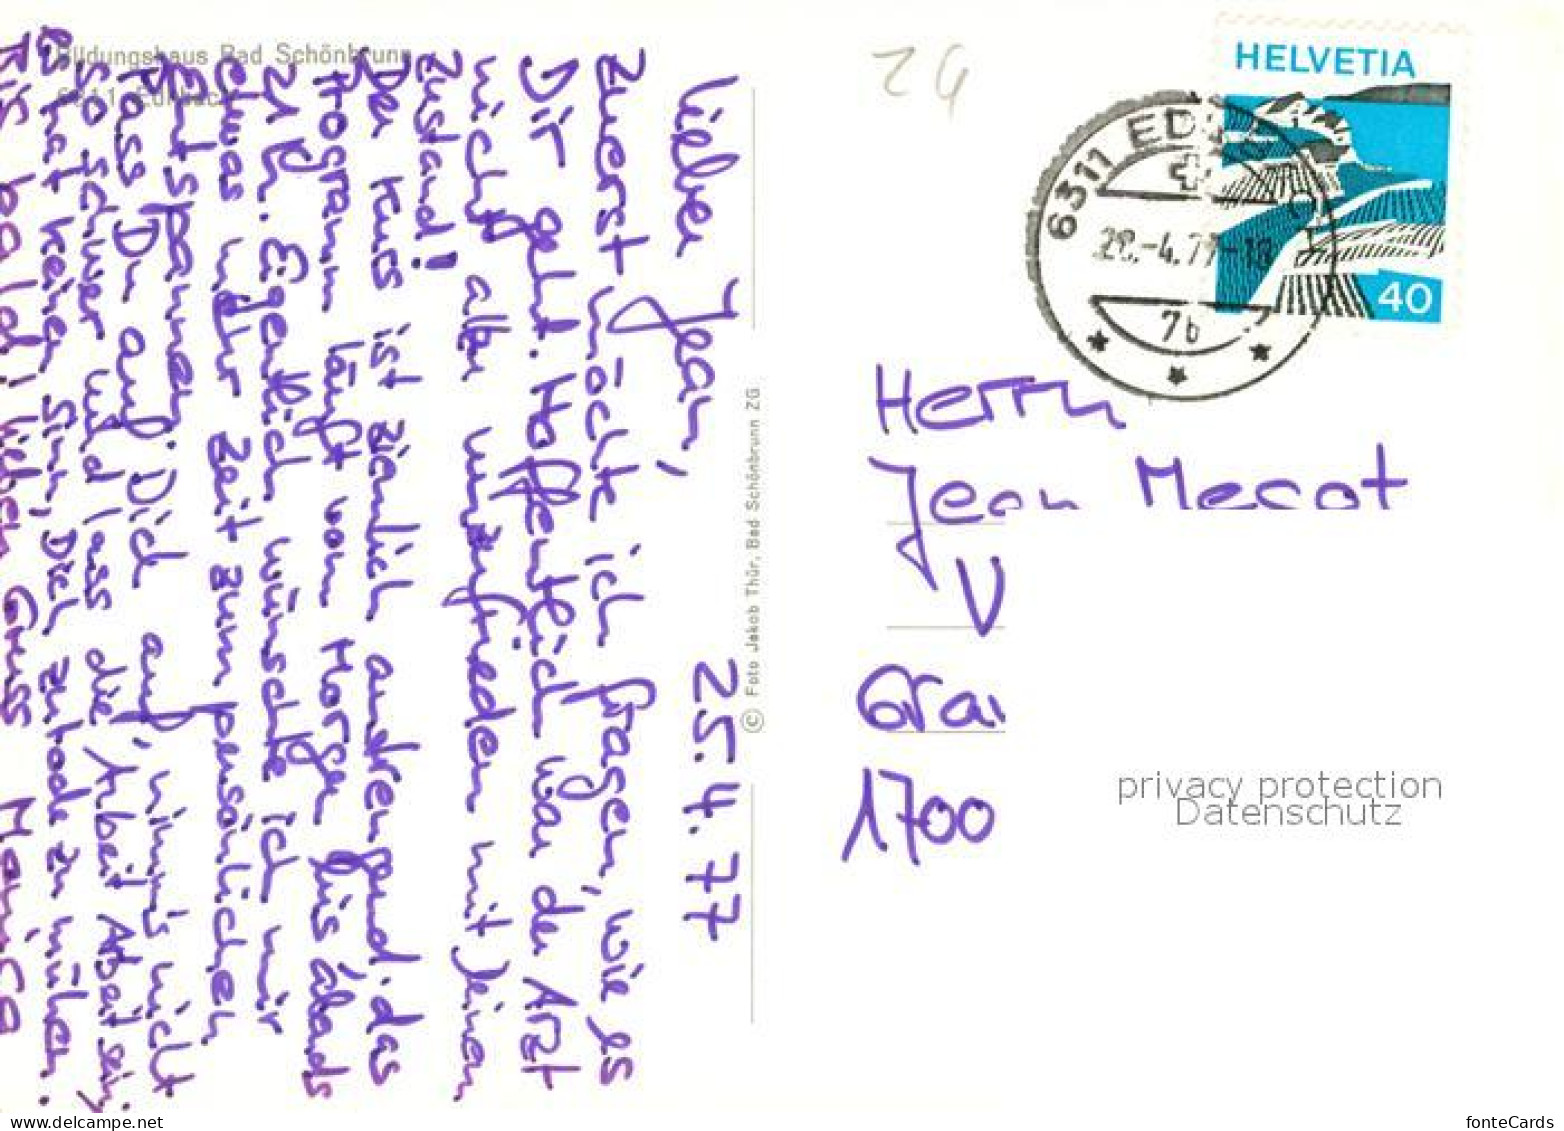 Bildungshaus Bad Schönbrunn
6311 Edlibach
25.4.77
Lieber Jean,
Zuerst möchte ich fragen, wie es
Dir geht. Hoffentlich war der Arzt
nicht allzu unzufrieden mit Deinem
Zustand!
Der Kurs ist ziemlich anstrengend: das
Programm läuft vom Morgen bis abends
21 Uhr. Eigentlich wünschte ich mir
etwas mehr Zeit zum persönlichen
Entspannen.
Pass Du auf Dich auf, nimm's nicht
so schwer und lass die 'Arbeit Arbeit sein;
es hat keinen Sinn, Dich zutode zu mühen.
Bis bald! Lieben Gruss
© Foto Jakob Thür, Bad Schönbrunn ZG
ZG
HELVETIA
40
6311 EDLIBACH
28.-4.77-18
7b
Herrn
Jean Mecot
V
Grai
1700
privacy protection
Datenschutz
www.delcampe.net
fonteCards